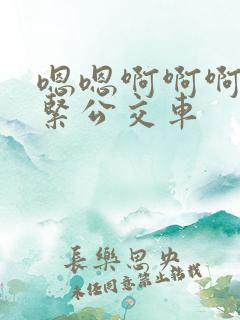 嗯嗯啊啊啊
紧公交车
長樂思央
未经同意禁止转载